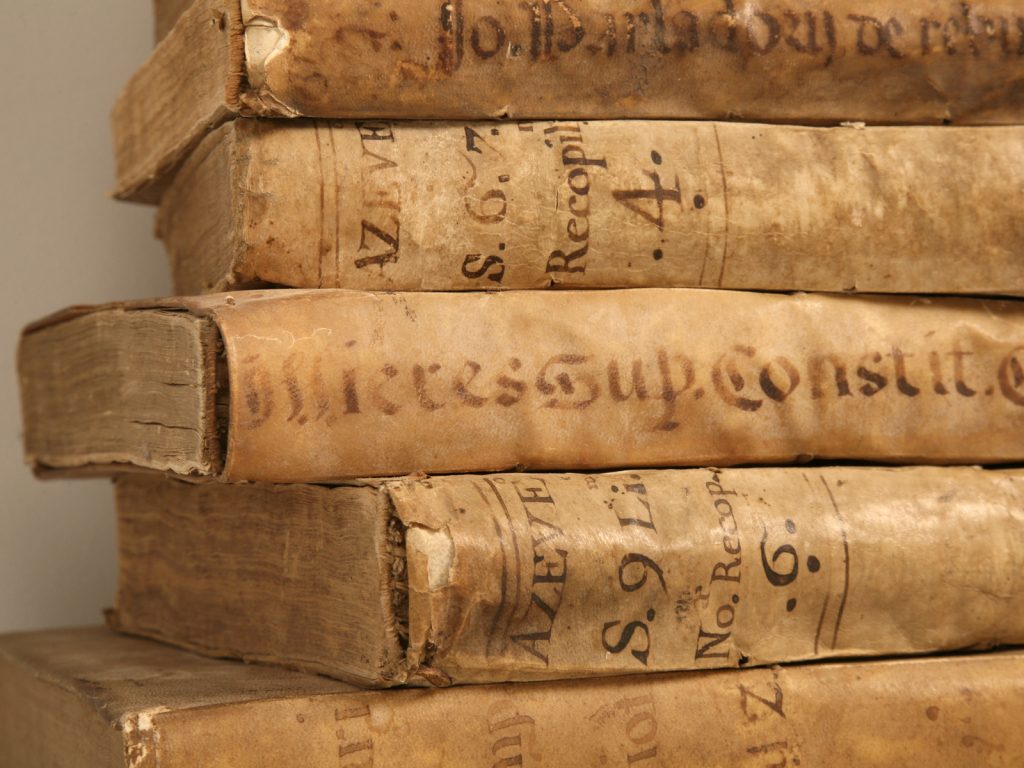 Jo. Parladorij de rebu
AZEVE
S. 6. 7.
Recopil
.4.
Mieres Sup. Constit. C
AZEVE
S. 9 Li.
No. Recop.
.6.